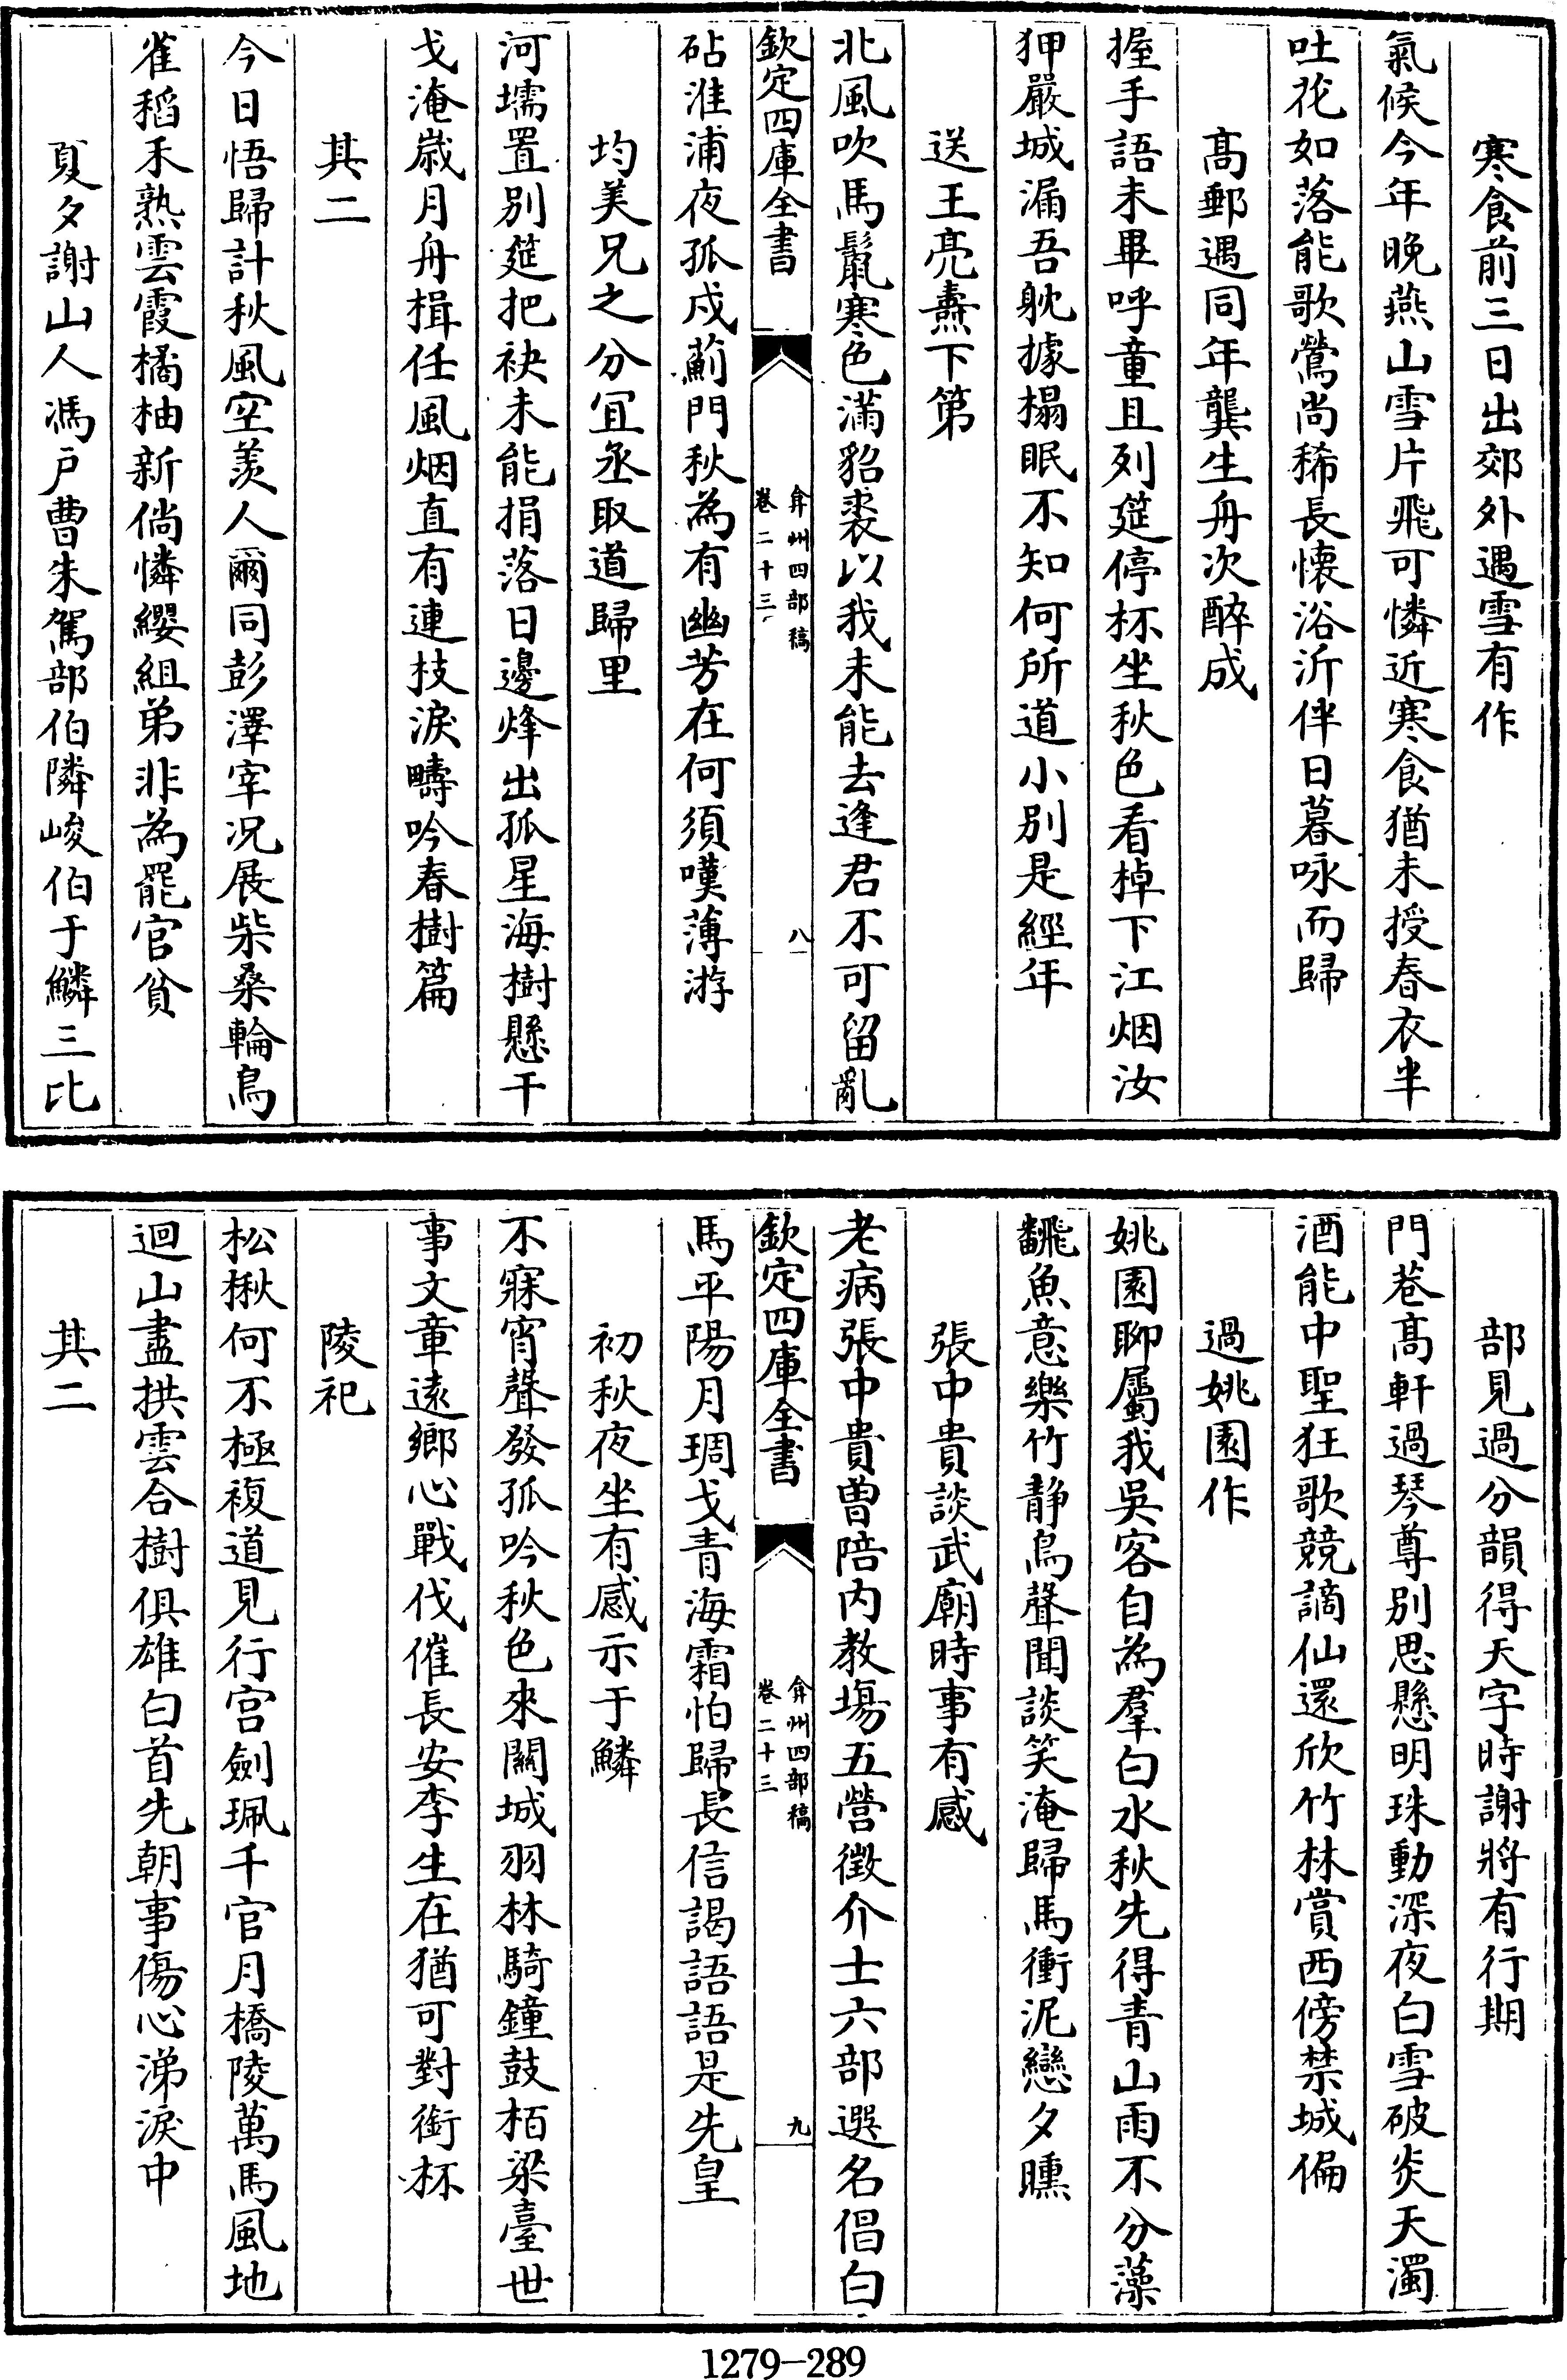 寒食前三日出郊外遇雪有作
氣候今年晚燕山雪片飛可憐近寒食猶未授春衣半
吐花如落能歌鶯尚稀長懷浴沂伴日暮咏而歸
髙郵遇同年龔生舟次醉成
握手語未畢呼童且列筵停杯坐秋色看棹下江烟汝
狎嚴城漏吾躭據榻眠不知何所道小别是經年
送王亮燾下第
北風吹馬鬛寒色滿貂裘以我未能去逢君不可留亂
欽定四庫全書
弇州四部稿
卷二十三
八
砧淮浦夜孤戍薊門秋為有幽芳在何須嘆薄游
均美兄之分宜丞取道歸里
河壖置别筵把袂未能捐落日邊烽出孤星海樹懸干
戈淹嵗月舟楫任風烟直有連枝淚疇吟春樹篇
其二
今日悟歸計秋風空羡人爾同彭澤宰况展柴桑輪鳥
雀稻禾熟雲霞橘柚新倘憐纓組弟非為罷官貧
夏夕謝山人馮户曹朱駕部伯隣峻伯于鱗三比
部見過分韻得天字時謝將有行期
門巷髙軒過琴尊别思懸明珠動深夜白雪破炎天濁
酒能中聖狂歌競謫仙還欣竹林賞西傍禁城偏
過姚園作
姚園聊屬我吳客自為羣白水秋先得青山雨不分藻
飜魚意樂竹静鳥聲聞談笑淹歸馬衝泥戀夕曛
張中貴談武廟時事有感
老病張中貴曽陪内教場五營徵介士六部選名倡白
欽定四庫全書
弇州四部稿
卷二十三
九
馬平陽月琱戈青海霜怕歸長信謁語語是先皇
初秋夜坐有感示于鱗
不寐宵聲發孤吟秋色來闗城羽林騎鐘鼓栢梁臺世
事文章逺鄉心戰伐催長安李生在猶可對銜杯
陵祀
松楸何不極複道見行宫劍珮千官月橋陵萬馬風地
迴山盡拱雲合樹俱雄白首先朝事傷心涕淚中
其二
1279—289